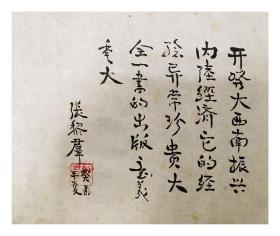 开发大西南振兴
内陆经济它的经
验异常珍贵大
全一书的出版意义
重大
张黎群